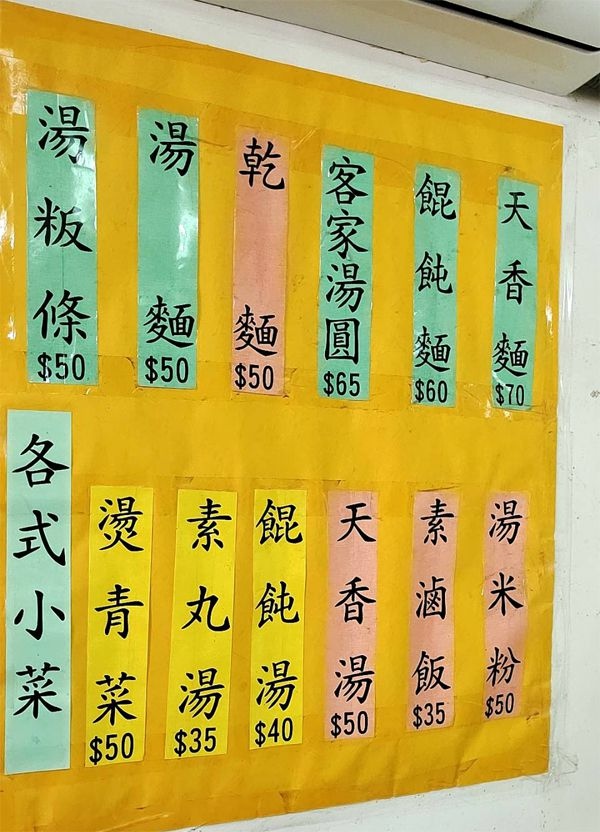 天香麵
$70
餛飩麵
$60
客家湯圓
$65
乾麵
$50
湯麵
$50
湯粄條
$50
湯米粉
$50
素滷飯
$35
天香湯
$50
餛飩湯
$40
素丸湯
$35
燙青菜
$50
各式小菜